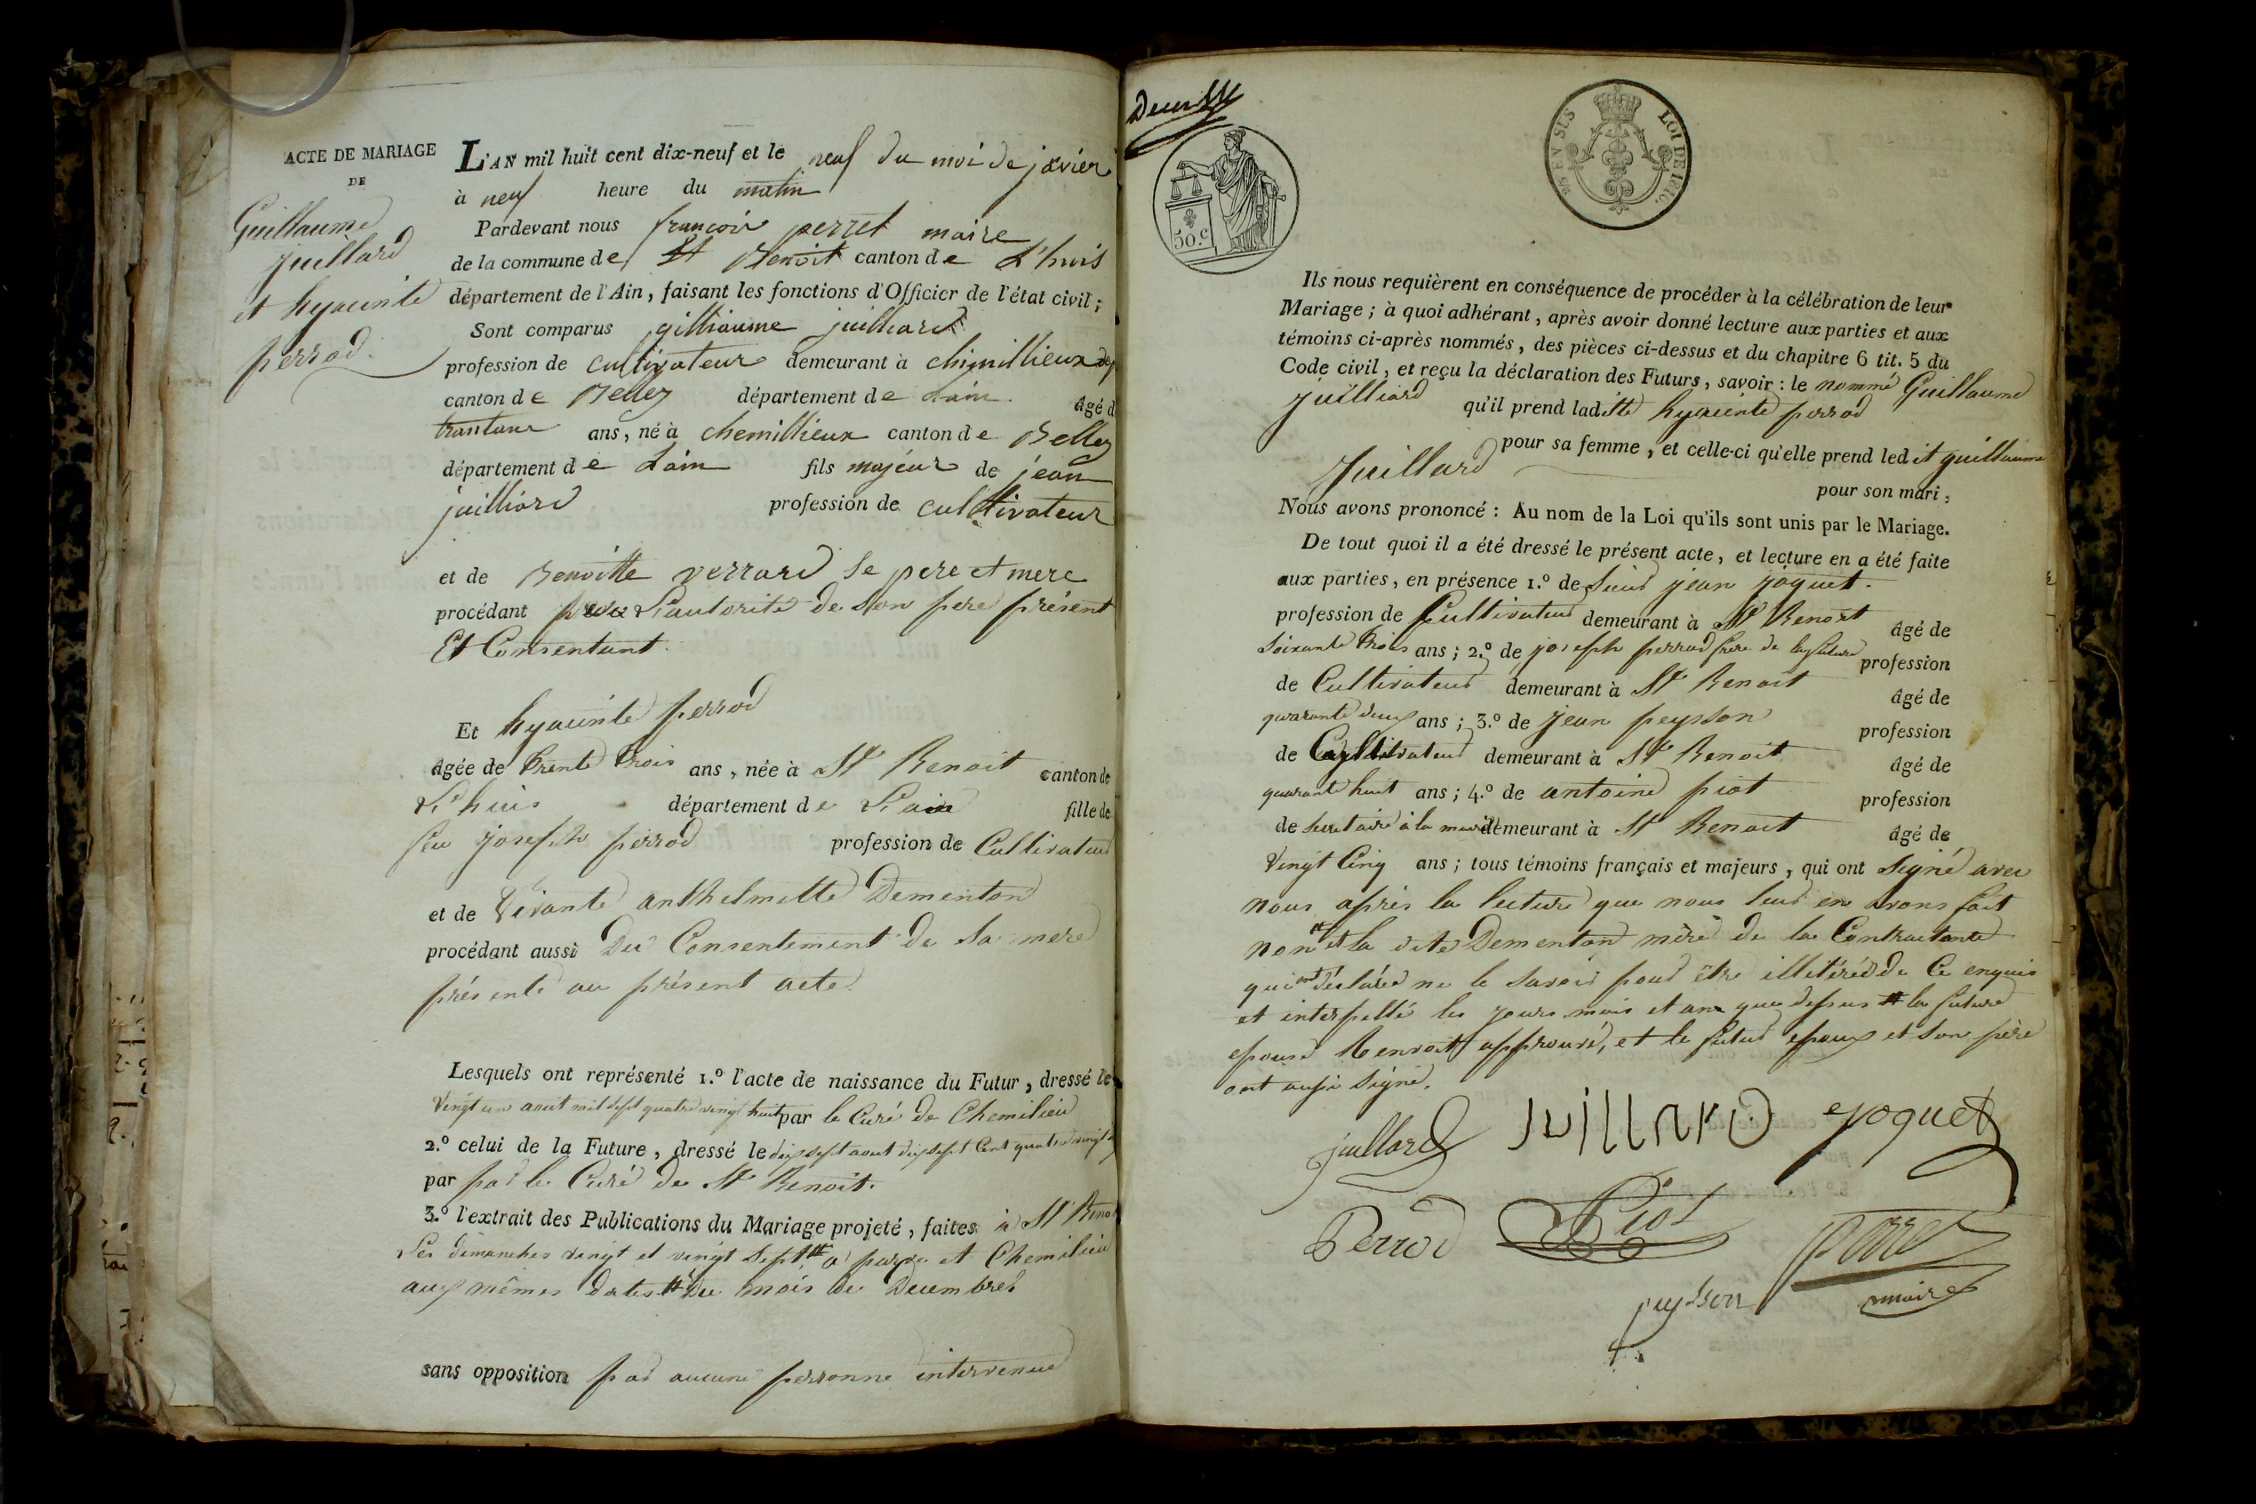 ACTE DE MARIAGE
DE
Guillaume
juillard
et hyacinte
perrod.
L'AN mil huit cent dix-neuf et le neuf du moi de javier
à neuf heure du matin
Pardevant nous françois perret maire
de la commune de St Benoit canton de L'huis
département de l'Ain, faisant les fonctions d'Officier de l'état civil;
Sont comparus gilliaume juilliard
profession de cultivateur demeurant à chimillieux
canton de Belley département de Lain. âgé d
ans, né à chemillieux canton de Belley
département de Lain fils majeur de jean
juilliard profession de cultivateur
et de Benoitte verrard se pere et mere
procédant L'autorité de son pere présent
Et Consentant.
Et hyacinte perrod
âgée de trente trois ans, née à St Benoit canton de
L'huis département de L'ain fille de
feu joseph perrod profession de Cultivateur
et de vivante anthelmette Dementon
procédant aussi Du Consentement de sa mere
présente au présent acte.
Lesquels ont représenté 1.º l'acte de naissance du Futur, dressé le
vingt un aout mil sept quatre vingt huit par le Curé de Chemilieu
2.º celui de la Future, dressé le dix sept aout dix sept Cent quatre vingt
par par le Curé de St Benoit.
3.º l'extrait des Publications du Mariage projeté, faites à St Benoi
Les dimanches vingt et vingt sept et Chemilieu
aux mêmes dates Du mois de Decembre
sans opposition par aucune personne intervenue
50.c
LOI DE 1816.
Ils nous requièrent en conséquence de procéder à la célébration de leur
Mariage; à quoi adhérant, après avoir donné lecture aux parties et aux
témoins ci-après nommés, des pièces ci-dessus et du chapitre 6 tit. 5 du
Code civil, et reçu la déclaration des Futurs, savoir: le nommé Guillaume
juilliard qu'il prend laditte hyacinte perrod
pour sa femme, et celle-ci qu'elle prend ledit guillaume
Juillard pour son mari;
Nous avons prononcé: Au nom de la Loi qu'ils sont unis par le Mariage.
De tout quoi il a été dressé le présent acte, et lecture en a été faite
aux parties, en présence 1.º de Sieur jean joquet.
profession de Cultivateur demeurant à St Benoit âgé de
soixante trois ans; 2.º de joseph perrod frere de la future profession
de Cultivateur demeurant à St Benoit âgé de
quarante deux ans; 3.º de jean peysson profession
de Cultivateur demeurant à St Benoit âgé de
quarante huit ans; 4.º de antoine piot profession
de secretaire à la mairie demeurant à St Benoit âgé de
vingt Cinq ans; tous témoins français et majeurs, qui ont signé avec
nous après la lecture que nous leur en avons fait
non et la dite Dementon mère de la Contractante
qui ont déclarée ne le savoir pour être illétéré de Ce enquis
et interpellé les jours mois et an que dessus la future
epouse Renvoit approuvé, et le futur epoux et son père
ont aussi signé.
juillard JUILLARD joquet
Perrod Piot perret
peysson maire